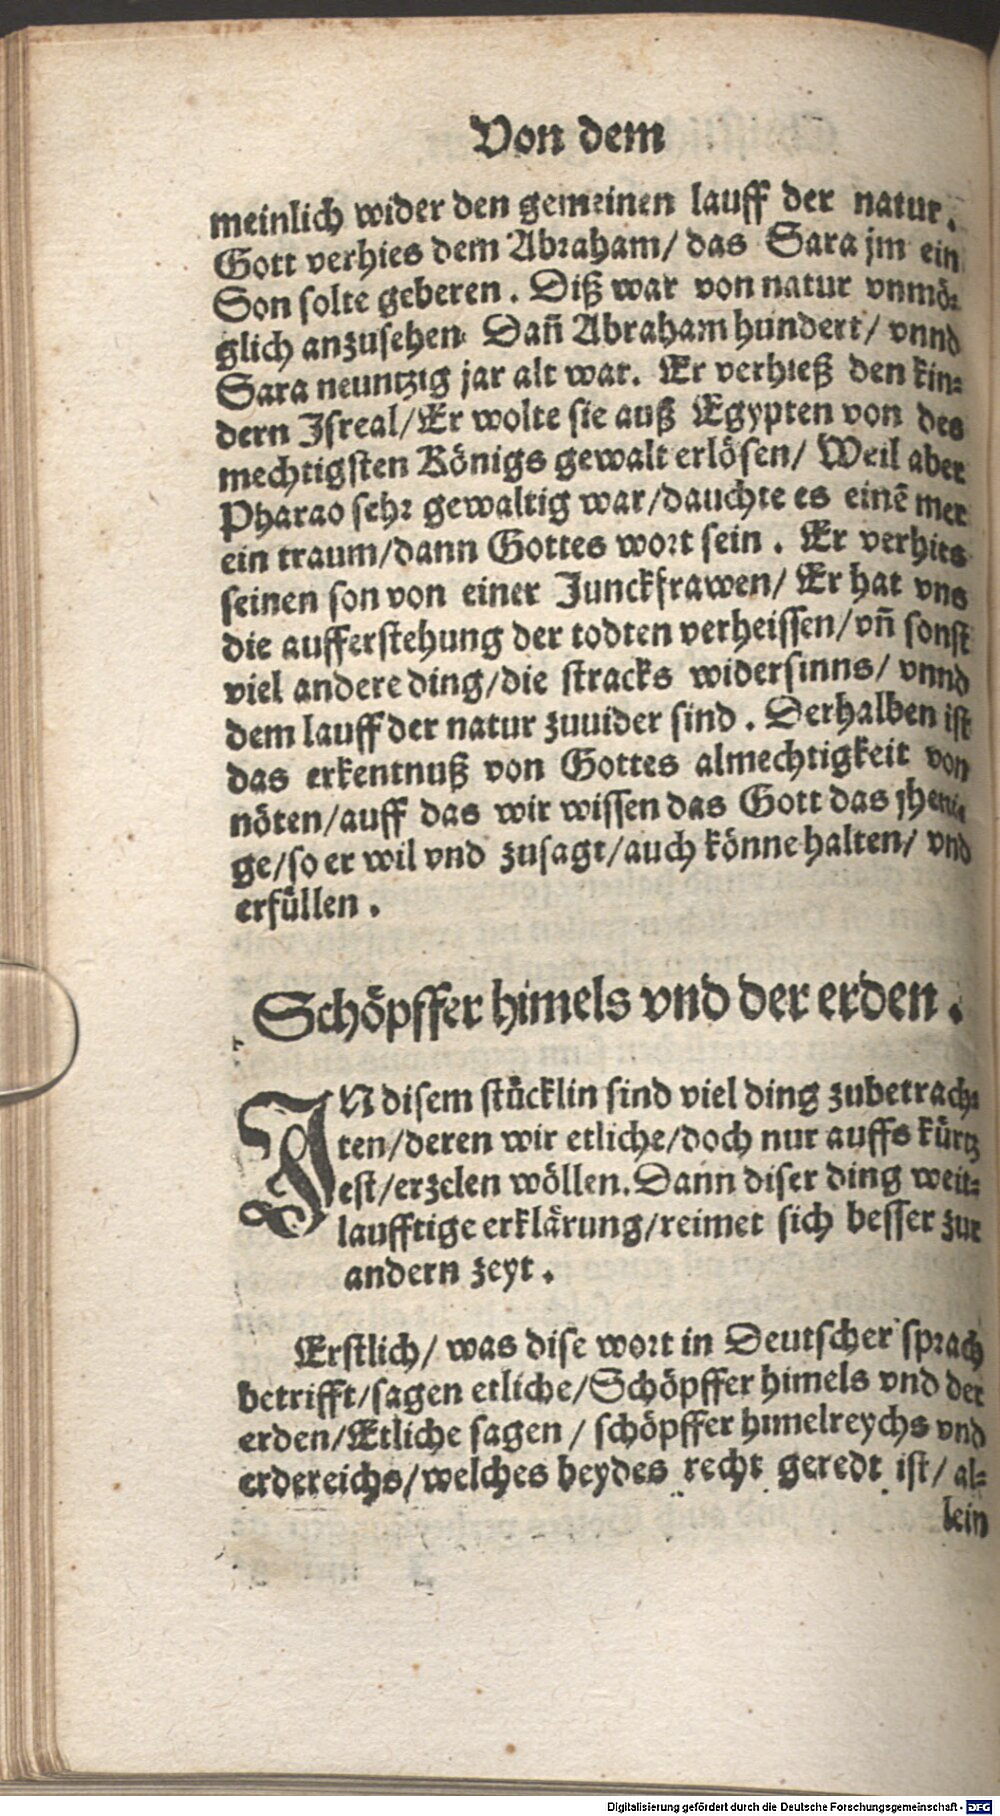 Von dem
meinlich wider den gemeinen lauff der natur.
Gott verhies dem Abraham/ das Sara jm ein
Son solte geberen. Diß war von natur vnmö-
glich anzusehen Dañ Abraham hundert/ vnnd
Sara neuntzig jar alt war. Er verhieß den kin-
dern Isreal/Er wolte sie auß Egypten von des
mechtigsten Königs gewalt erlösen/ Weil aber
Pharao sehr gewaltig war/dauchte es einē mer
ein traum/dann Gottes wort sein. Er verhies
seinen son von einer Junckfrawen/ Er hat vns
die aufferstehung der todten verheissen/vñ sonst
viel andere ding/die stracks widersinns/ vnnd
dem lauff der natur zuuider sind. Derhalben ist
das erkentnuß von Gottes almechtigkeit von
nöten/auff das wir wissen das Gott das jheni-
ge/so er wil vnd zusagt/auch könne halten/ vnd
erfüllen.
Schöpffer himels vnd der erden.
IN disem stücklin sind viel ding zubetrach-
ten/deren wir etliche/doch nur auffs kürtz
est/erzelen wöllen. Dann diser ding weit-
laufftige erklärung/reimet sich besser zur
andern zeyt.
Erstlich/ was dise wort in Deutscher sprach
betrifft/sagen etliche/Schöpffer himels vnd der
erden/Etliche sagen/ schöpffer himelreychs vnd
erdereichs/welches beydes recht geredt ist/ al-
lein
Digitalisierung gefördert durch die Deutsche Forschungsgemeinschaft - DFG